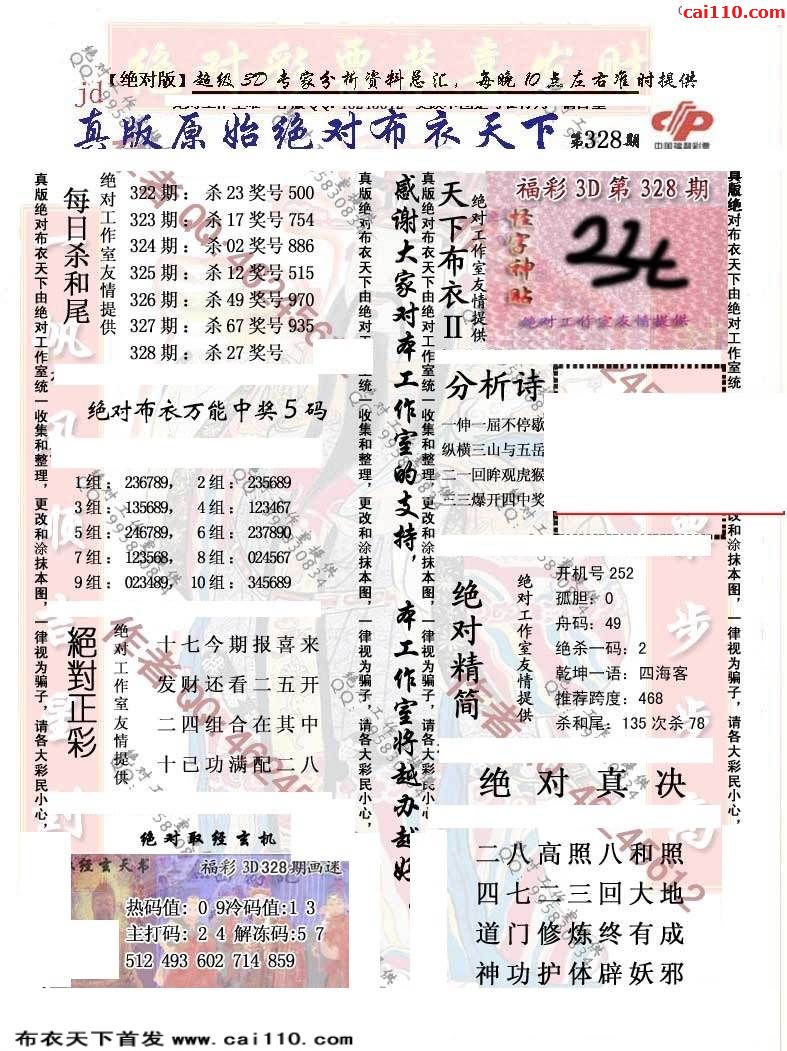 cai110.com
【绝对版】超级3D专家分析资料总汇，每晚10点左右准时提供
jd
真版原始绝对布衣天下 第328期
中国福利彩票
真版绝对布衣天下由绝对工作室统一收集和整理，更改和涂抹本图，一律视为骗子，请各大彩民小心，
每日杀和尾
绝对工作室友情提供
322期：杀23奖号500
323期：杀17奖号754
324期：杀02奖号886
325期：杀12奖号515
326期：杀49奖号970
327期：杀67奖号935
328期：杀27奖号
绝对布衣万能中奖5码
1组：236789，2组：235689
3组：135689，4组：123467
5组：246789，6组：237890
7组：123568，8组：024567
9组：023489，10组：345689
絕對正彩
绝对工作室友情提供
十七今期报喜来
发财还看二五开
二四组合在其中
十己功满配二八
绝对取经玄机
经玄天书 福彩3D328期画迷
热码值：0 9冷码值:1 3
主打码：2 4 解冻码:5 7
512 493 602 714 859
感谢大家对本工作室的支持，本工作室将越办越好
真版绝对布衣天下由绝对工作室统一收集和整理，更改和涂抹本图，一律视为骗子，请各大彩民小心，
天下布衣II
绝对工作室友情提供
福彩3D第328期
怪字神贴
绝对工作室友情提供
分析诗
一伸一屈不停歇
纵横三山与五岳
二一回眸观虎猴
二三爆开四中奖
绝对精简
绝对工作室友情提供
开机号252
孤胆：0
舟码：49
绝杀一码：2
乾坤一语：四海客
推荐跨度：468
杀和尾：135次杀78
绝对真决
二八高照八和照
四七二三回大地
道门修炼终有成
神功护体辟妖邪
布衣天下首发 www.cai110.com